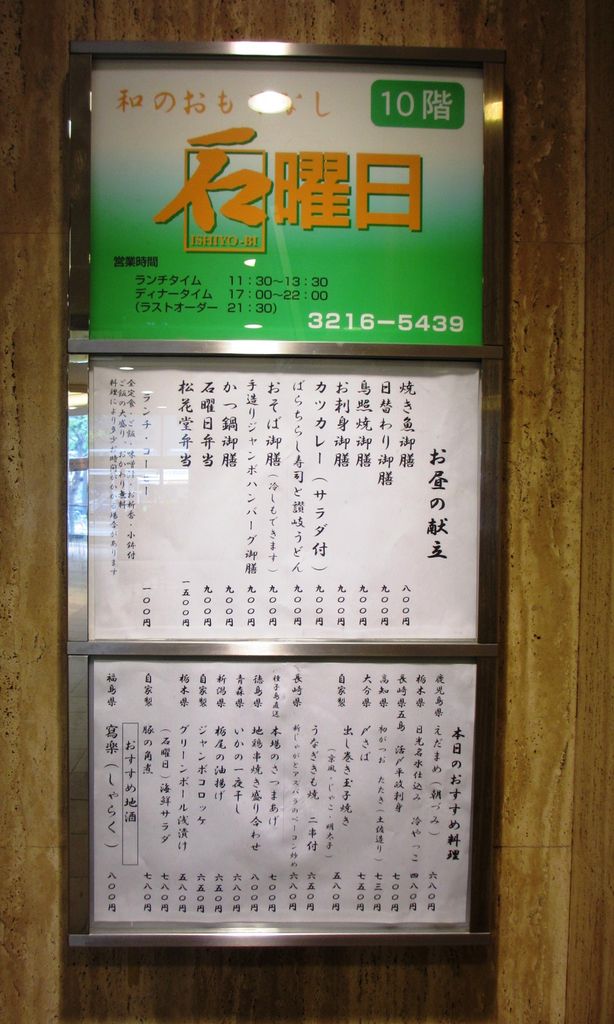 和のおもてなし
10階
石曜日
ISHIYO-BI
営業時間
ランチタイム 11:30~13:30
ディナータイム 17:00~22:00
(ラストオーダー 21:30)
3216-5439
お昼の献立
焼き魚御膳 八〇〇円
日替わり御膳 九〇〇円
鳥照焼御膳 九〇〇円
お刺身御膳 九〇〇円
カツカレー(サラダ付) 九〇〇円
ばらちらし寿司と讃岐うどん 九〇〇円
おそば御膳(冷しもできます) 九〇〇円
手造りジャンボハンバーグ御膳 九〇〇円
かつ鍋御膳 九〇〇円
石曜日弁当 九〇〇円
松花堂弁当 一五〇〇円
ランチ・コーヒー 一〇〇円
全定食・ご飯・味噌汁・お新香・小鉢付
ご飯の大盛り、おかわり無料
料理により多少お時間がかかる場合があります
本日のおすすめ料理
鹿児島県 えだまめ(朝づみ) 六八〇円
栃木県 日光名水仕込み 冷やっこ 四八〇円
長崎県五島 活〆平政刺身 七〇〇円
高知県 初がつお たたき(土佐造り) 七三〇円
大分県 〆さば 七五〇円
自家製 出し巻き玉子焼き 五八〇円
(京風・じゃこ・明太子)
うなぎきも焼 二串付 六五〇円
長崎県 新じゃがとアスパラのベーコン炒め 六八〇円
種子島直送 本場のさつまあげ 七〇〇円
徳島県 地鶏串焼き盛り合わせ 八〇〇円
青森県 いかの一夜干し 六八〇円
新潟県 栃尾の油揚げ 六五〇円
自家製 ジャンボコロッケ 六五〇円
栃木県 グリーンボール浅漬け 五八〇円
(石曜日)海鮮サラダ 七八〇円
自家製 豚の角煮 七八〇円
おすすめ地酒
福島県 寫楽(しゃらく) 八〇〇円